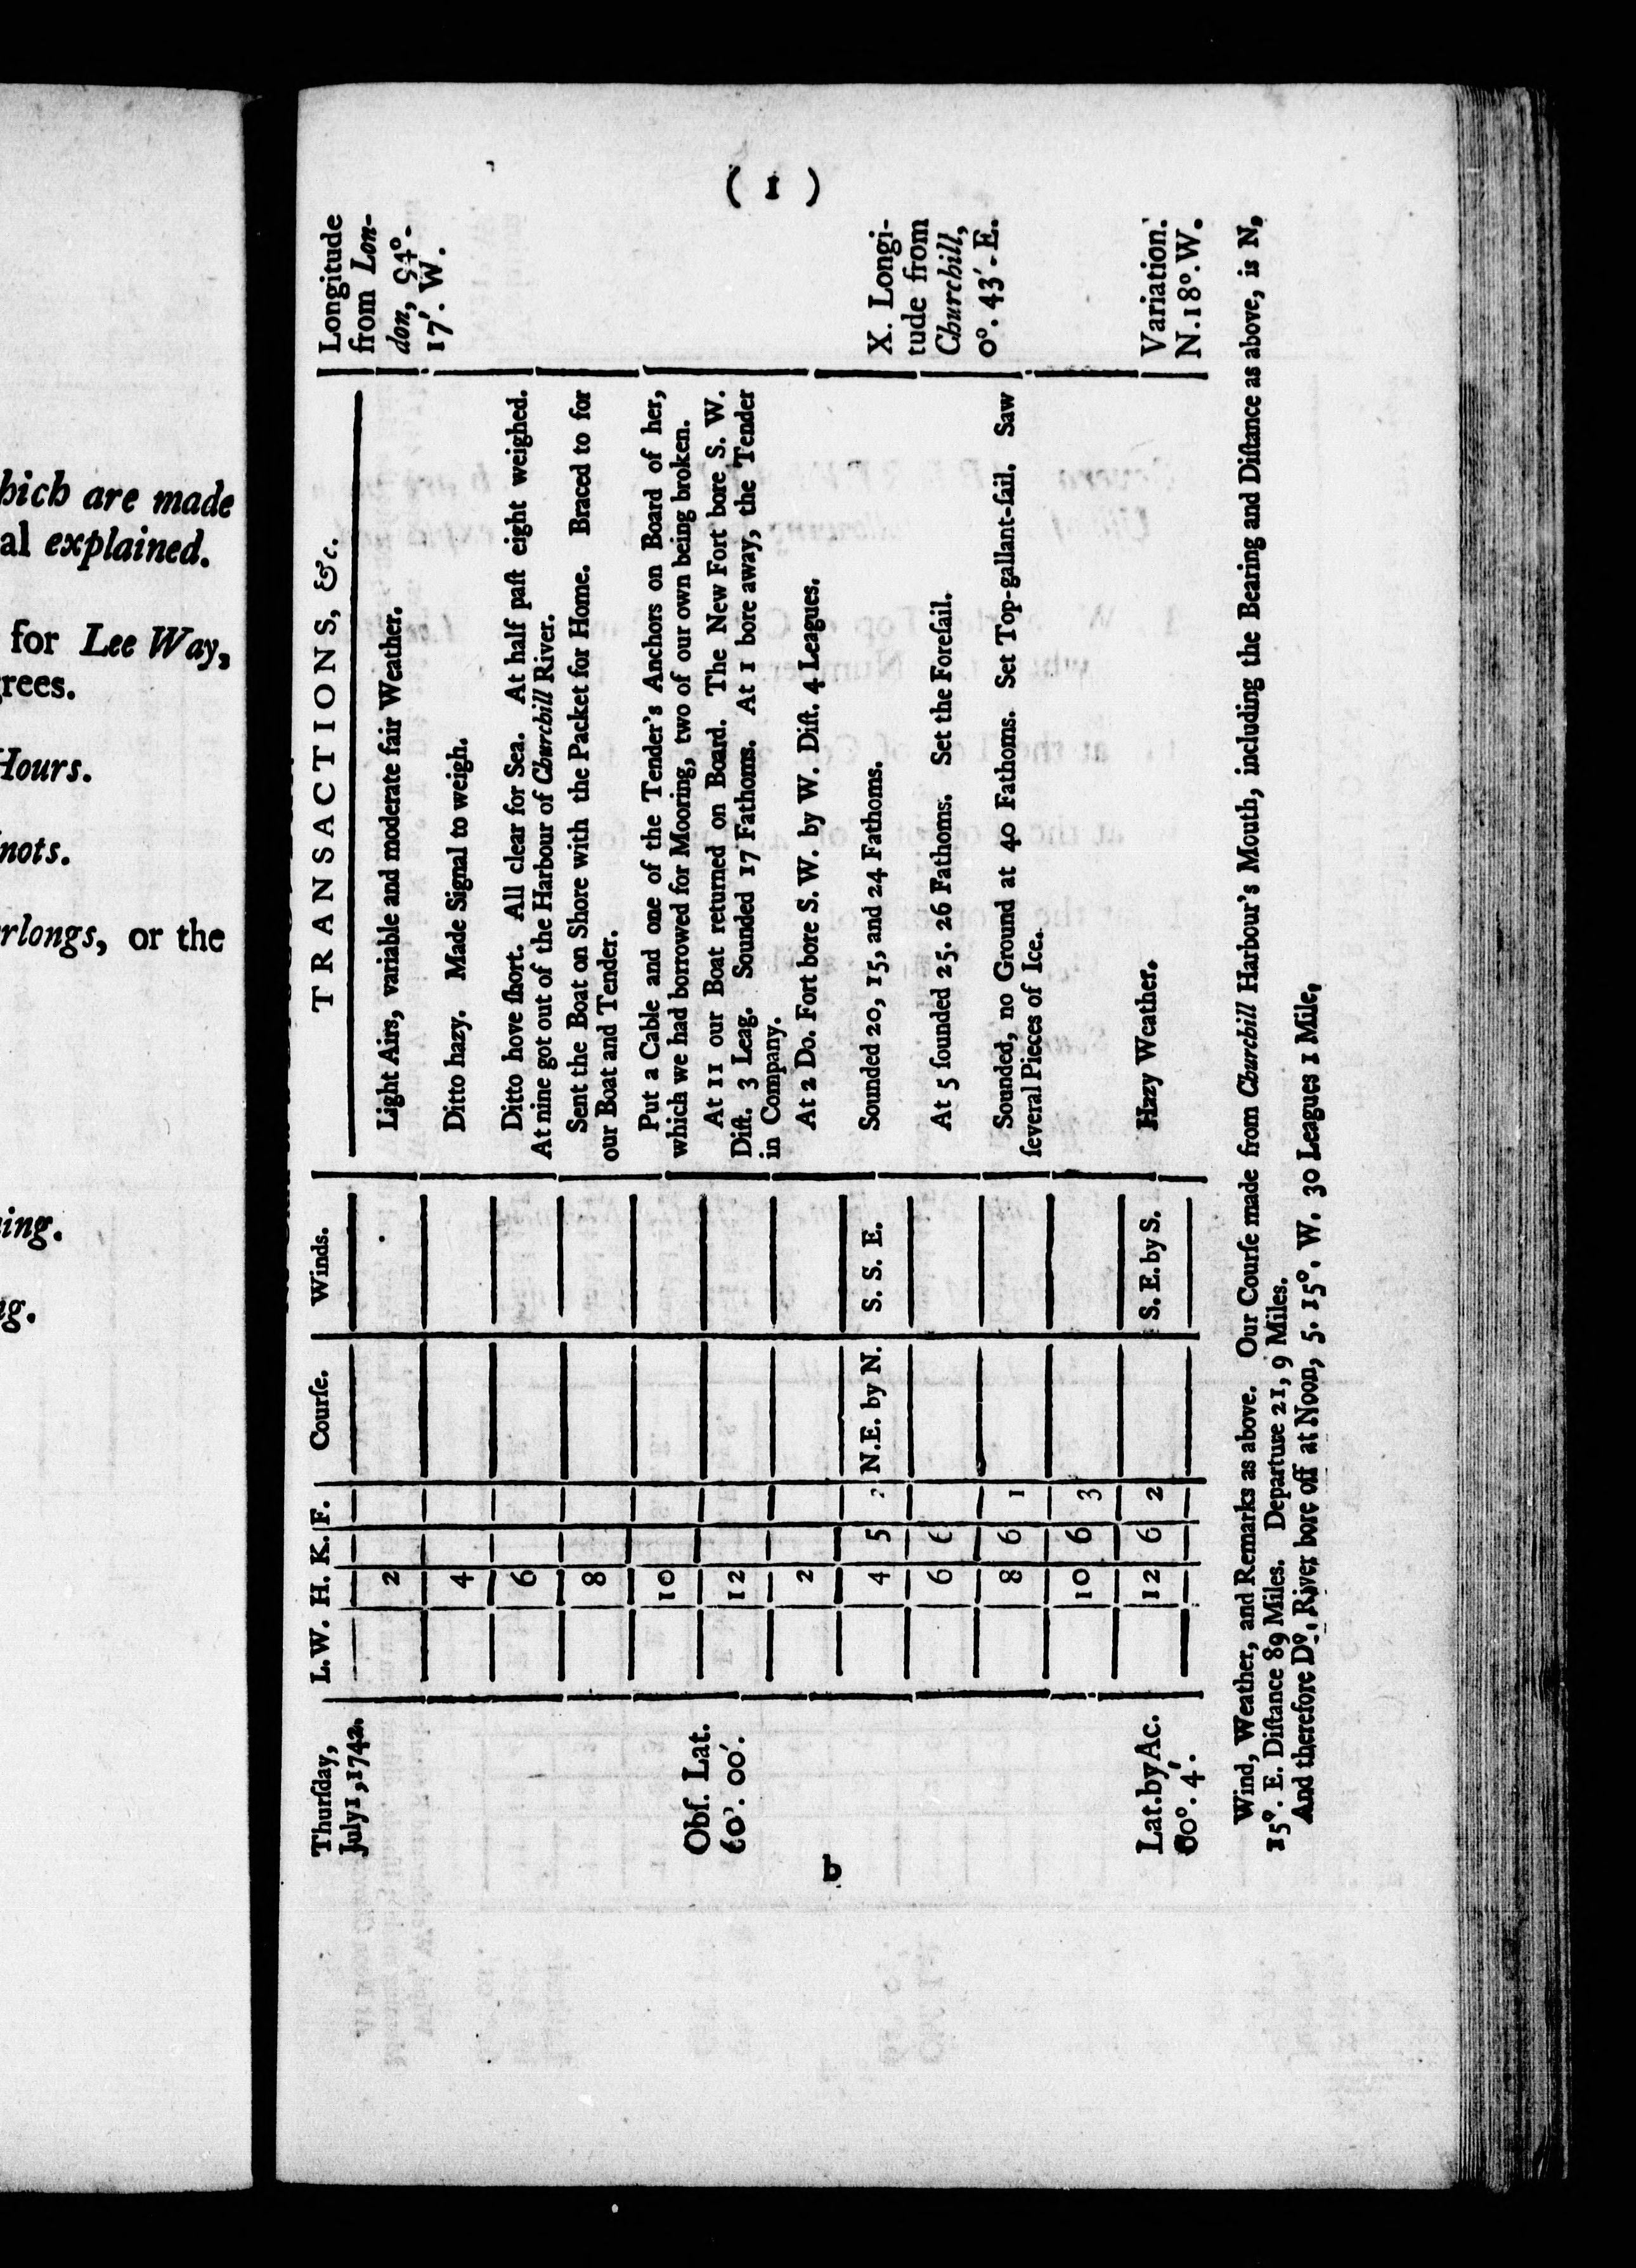 hich are made
al explained.
for Lee Way,
rees.
Hours.
nots.
rlongs, or the
ing.
g.
( 1 )
Thurſday,
July 1, 1742.
L.W. H. K. F. Courſe. Winds. TRANSACTIONS, &c.
Longitude
from Lon-
don, 94°-
17'. W.
2 Light Airs, variable and moderate fair Weather.
4 Ditto hazy. Made Signal to weigh.
6 Ditto hove ſhort. All clear for Sea. At half paſt eight weighed.
At nine got out of the Harbour of Churchill River.
8 Sent the Boat on Shore with the Packet for Home. Braced to for
our Boat and Tender.
10 Put a Cable and one of the Tender's Anchors on Board of her,
which we had borrowed for Mooring, two of our own being broken.
Obſ. Lat.
60°. 00'.
12 At 11 our Boat returned on Board. The New Fort bore S. W.
Diſt. 3 Leag. Sounded 17 Fathoms. At 1 bore away, the Tender
in Company.
2 At 2 Do. Fort bore S. W. by W. Diſt. 4 Leagues.
b
4 5 N.E. by N. S. S. E. Sounded 20, 15, and 24 Fathoms.
X. Longi-
tude from
Churchill,
0°. 43'-E.
6 6 At 5 ſounded 25. 26 Fathoms. Set the Foreſail.
8 6 1 Sounded, no Ground at 40 Fathoms. Set Top-gallant-ſail. Saw
ſeveral Pieces of Ice.
10 6 3
Lat.byAc.
60°. 4'.
12 6 2 S. E. by S. Hazy Weather.
Variation.
N.18°.W.
Wind, Weather, and Remarks as above. Our Courſe made from Churchill Harbour's Mouth, including the Bearing and Diſtance as above, is N,
15°. E. Diſtance 89 Miles. Departure 21, 9 Miles.
And therefore D°, River bore off at Noon, 5. 15°. W. 30 Leagues 1 Mile,